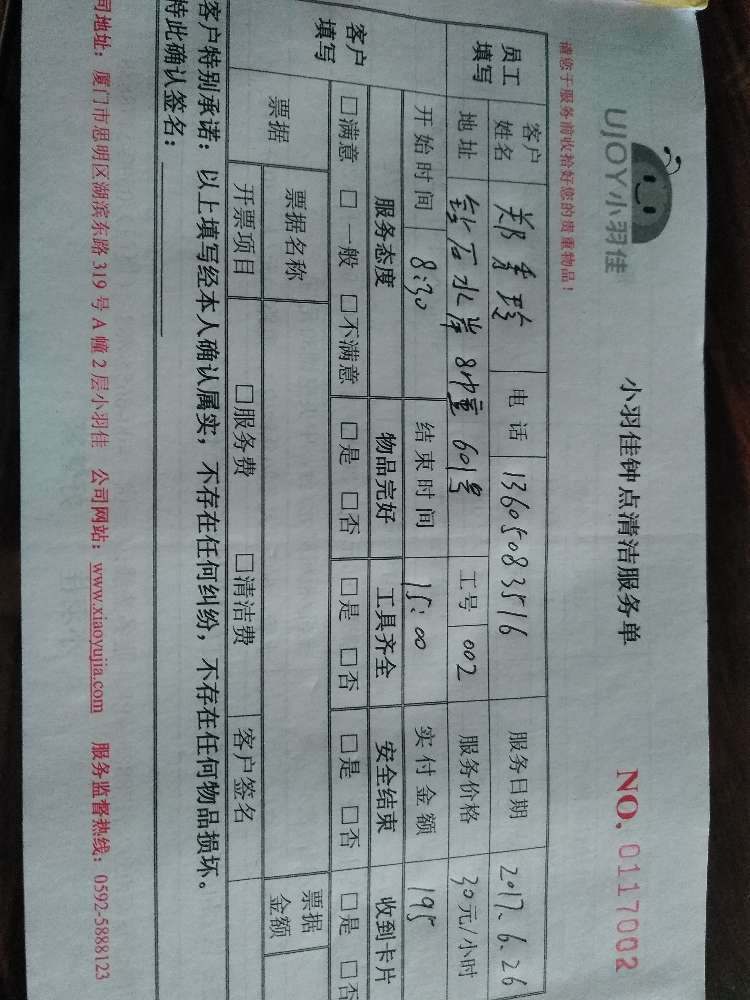 UJOY小羽佳
小羽佳钟点清洁服务单
NO. 0117002
请您于服务前收拾好您的贵重物品！
员工填写 客户姓名 郑秀珍 电话 13605083516 服务日期 2017.6.26
地址 钻石水岸 8幢 601号 工号 002 服务价格 30元/小时
开始时间 8:30 结束时间 15:00 实付金额 195
客户填写 服务态度 物品完好 工具齐全 安全结束 收到卡片
□满意 □一般 □不满意 □是 □否 □是 □否 □是 □否 □是 □否
票据 票据名称 票据金额
开票项目 □服务费 □清洁费 客户签名
客户特别承诺：以上填写经本人确认属实，不存在任何纠纷，不存在任何物品损坏。
特此确认签名：
司地址：厦门市思明区湖滨东路 319 号 A 幢 2 层小羽佳 公司网站：www.xiaoyujia.com 服务监督热线：0592-5888123